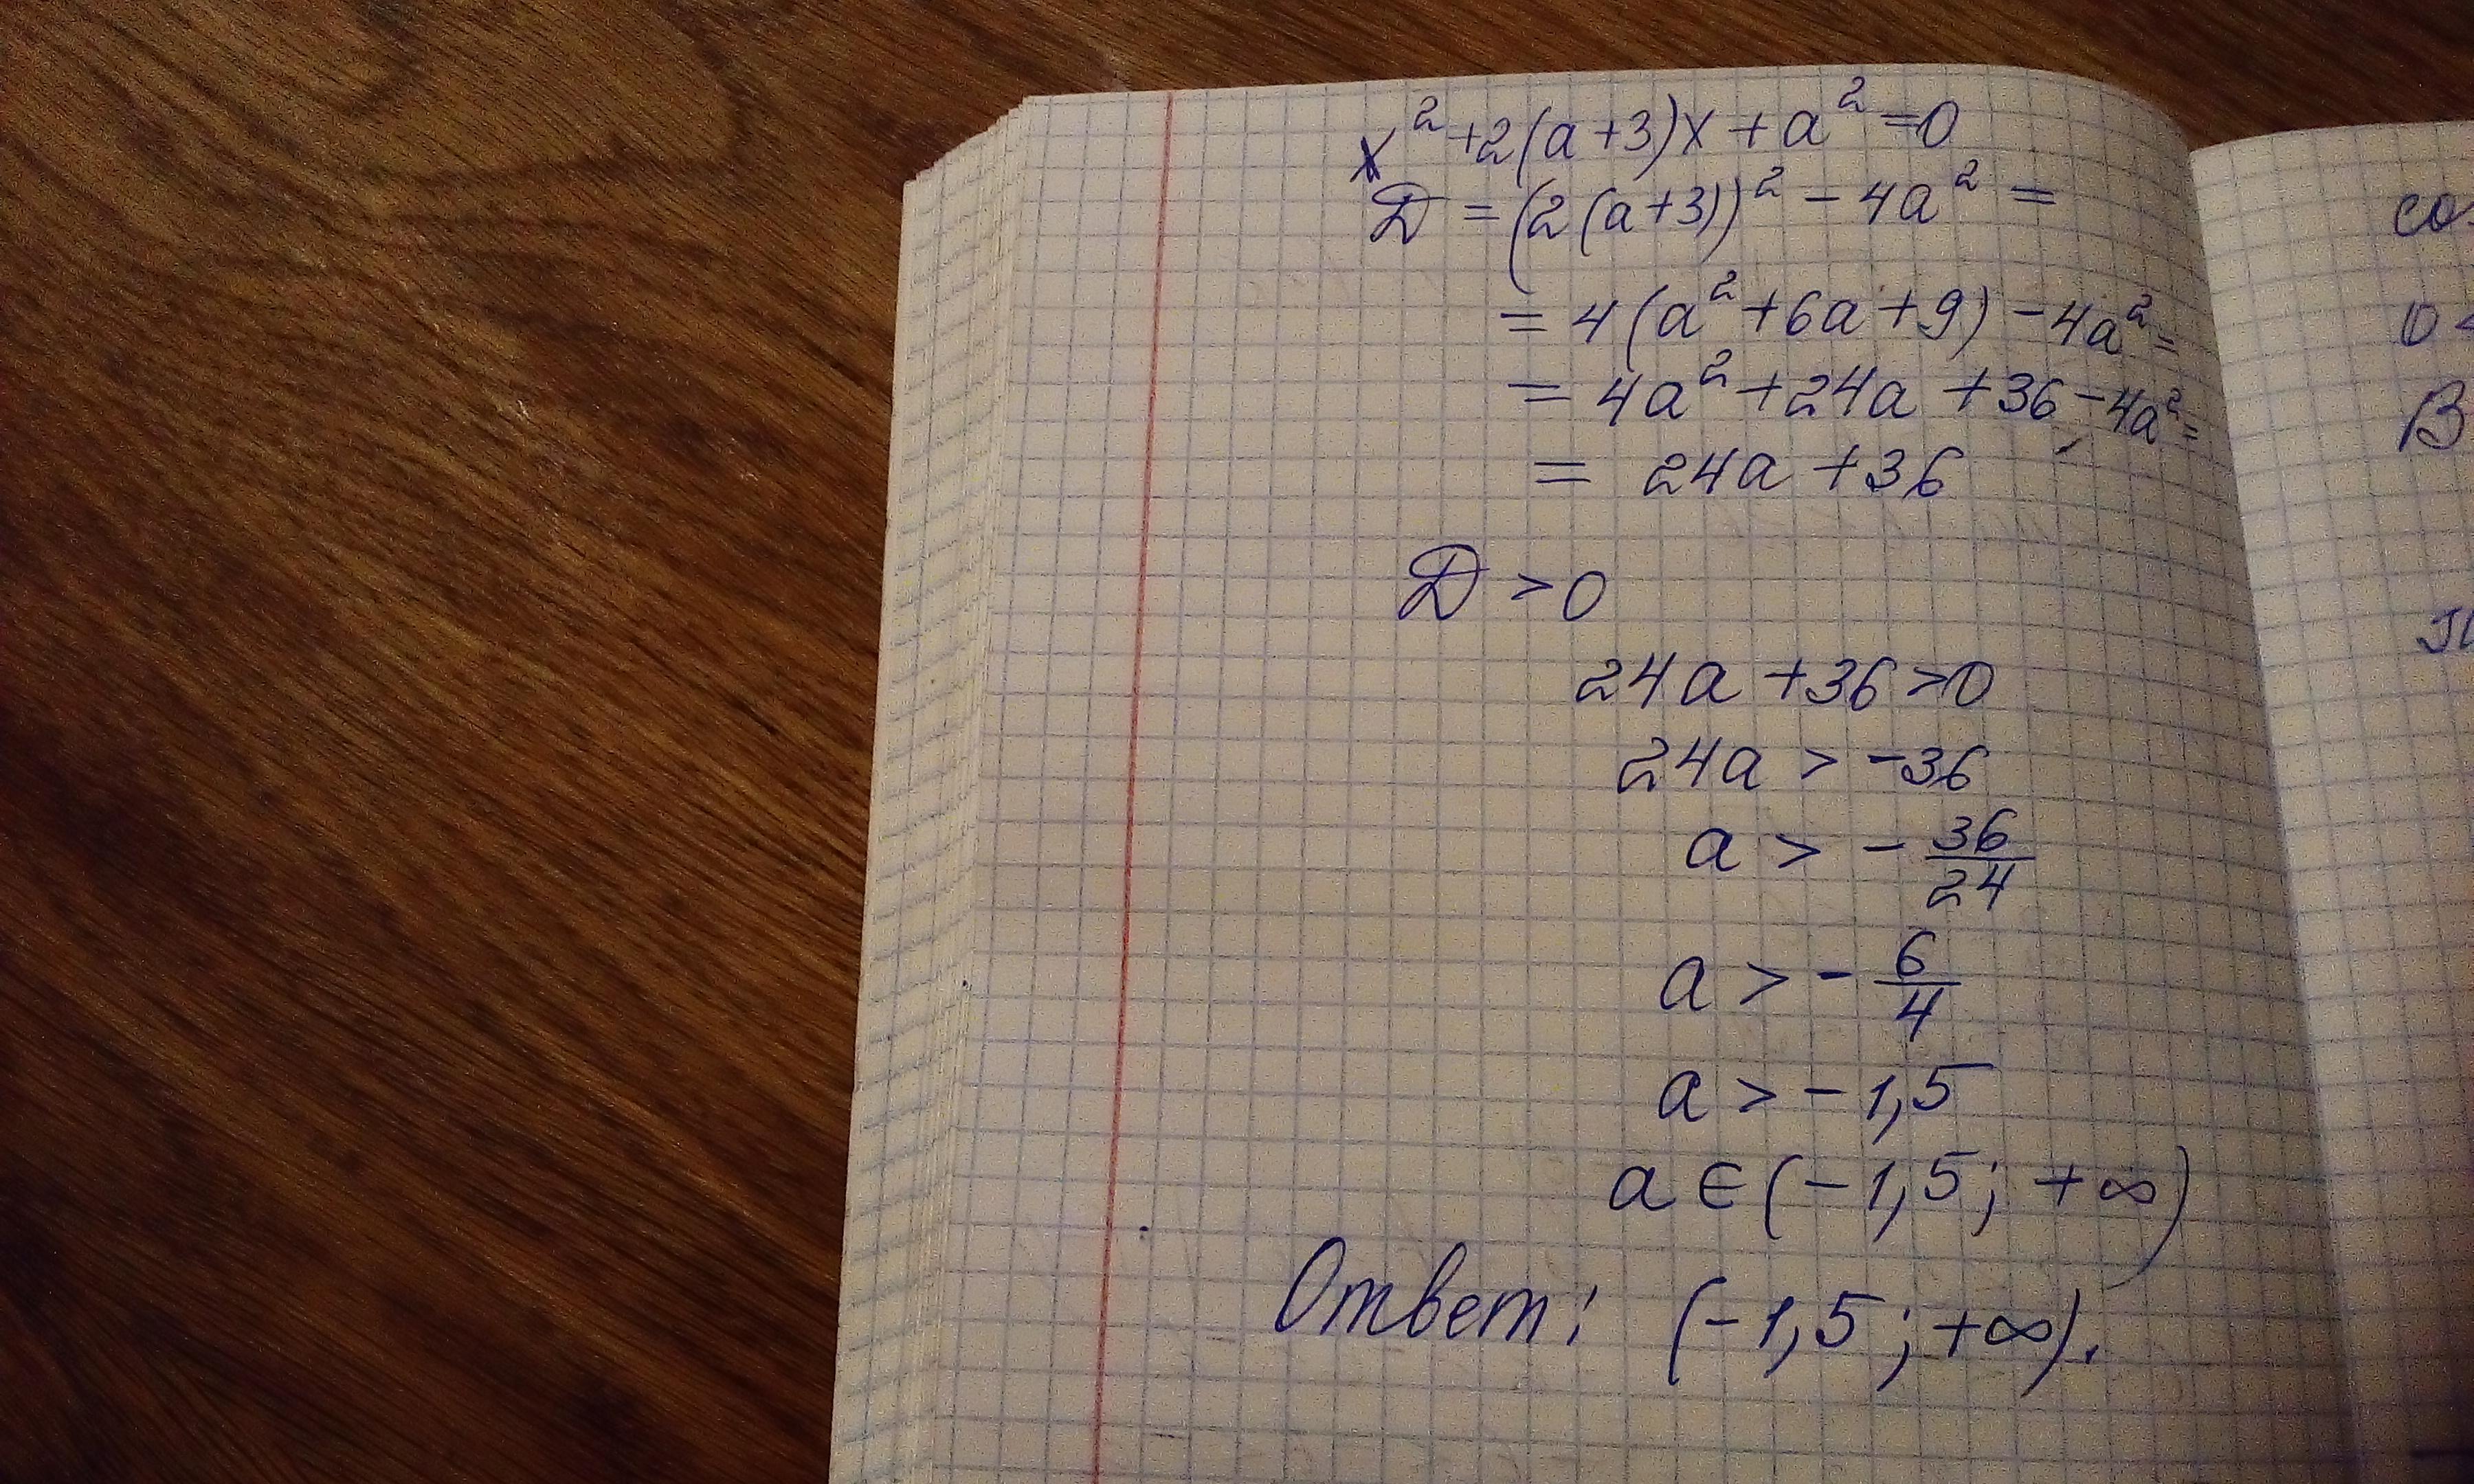 x² + 2(a + 3)x + a² = 0
D = (2(a + 3))² - 4a² =
= 4(a² + 6a + 9) - 4a² =
= 4a² + 24a + 36 - 4a² =
= 24a + 36
D > 0
24a + 36 > 0
24a > -36
a > - 36/24
a > - 6/4
a > - 1,5
a ∈ (- 1,5; + ∞)
Ответ: (- 1,5; + ∞).